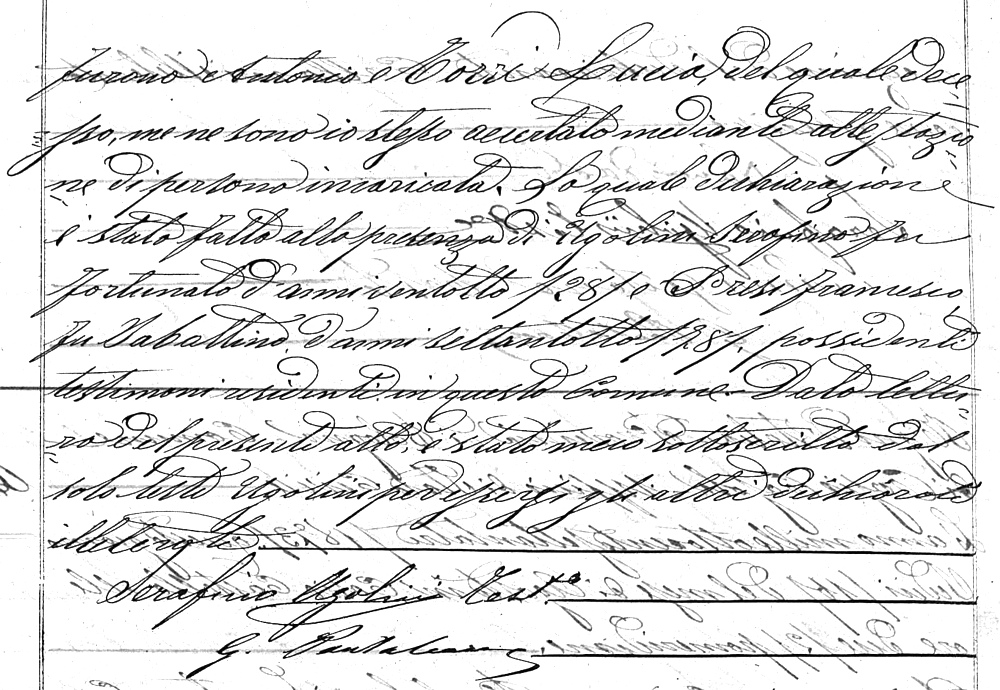 furono Antonio e Torri Lucia, del quale deces=
=so, me ne sono io stesso accertato mediante attestazio
=ne di persona incaricata. La quale dichiarazione
è stata fatta alla presenza di Ugolini Serafino fu
Fortunato d'anni ventotto /28/ e Presi Francesco
fu Sabattino, d'anni settantotto /78/, possidenti
testimoni residenti in questo Comune. Data lettu=
=ra del presente atto, è stato meco sottoscritto dal
solo teste Ugolini per essersi gli altri dichiarati
illetterati
Serafino Ugolini Test.
G.